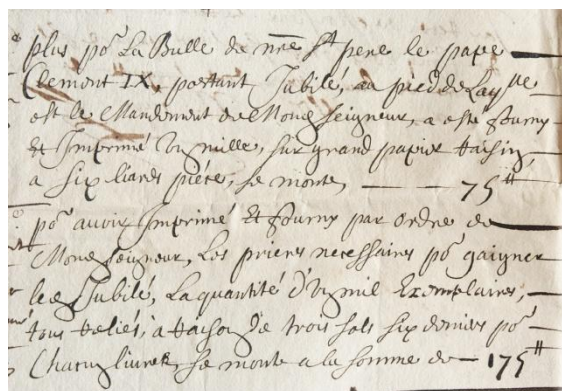 plus po^r La Bulle de nr̃e S^t pere le pape
Clement IX, portant Jubilé, au pied de Laq^lle
est le Mandement de Monseigneur, a esté fourny
Et Imprimé Un mille, sur grand papier Raisin,
a six liards piéce, se monte, 75^tt
po^r avoir Imprimé Et fourny par ordre de
Monseigneur, Les prieres necessaires po^r gaigner
led^t Jubilé, La quantité d'Un mil Exemplaires,
tous Reliés, a Raison de trois sols six deniers po^r
Chacun livret, se monte a la somme de 175^tt